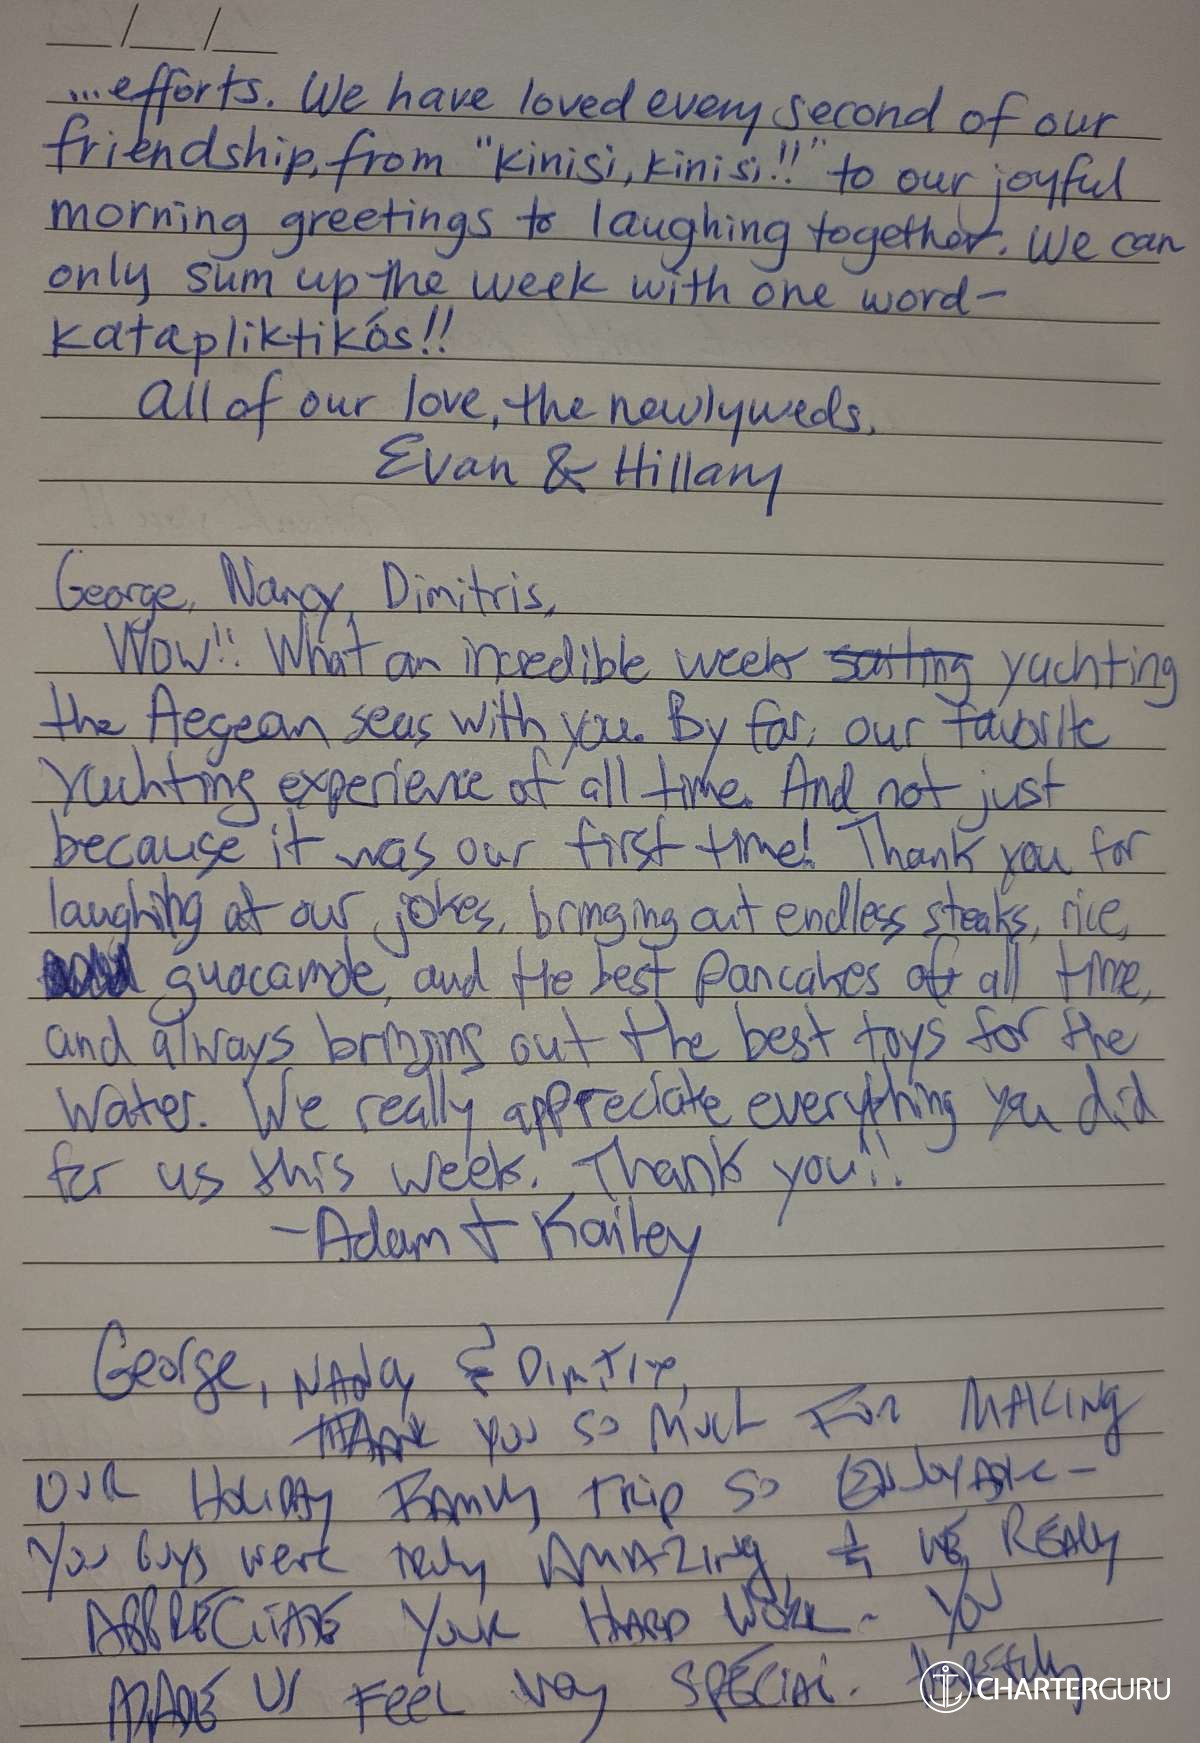 __/__/__
...efforts. We have loved every second of our
friendship, from "kinisi, kinisi!!" to our joyful
morning greetings to laughing together. We can
only sum up the week with one word-
katapliktikós!!
All of our love, the newlyweds,
Evan & Hillary
George, Nancy, Dimitris,
Wow!! What an incredible week yachting
the Aegean seas with you. By far, our favorite
yachting experience of all time. And not just
because it was our first time! Thank you for
laughing at our jokes, bringing out endless steaks, rice,
guacamole, and the best pancakes of all time,
and always bringing out the best toys for the
water. We really appreciate everything you did
for us this week. Thank you!!
-Adam + Kailey
George, &
Thank you so much for making
our Holiday Family trip so
You guys were truly Amazing & we Really
APPRECIATE your HARD WORK - You
MADE US FEEL very SPECIAL.
CHARTERGURU